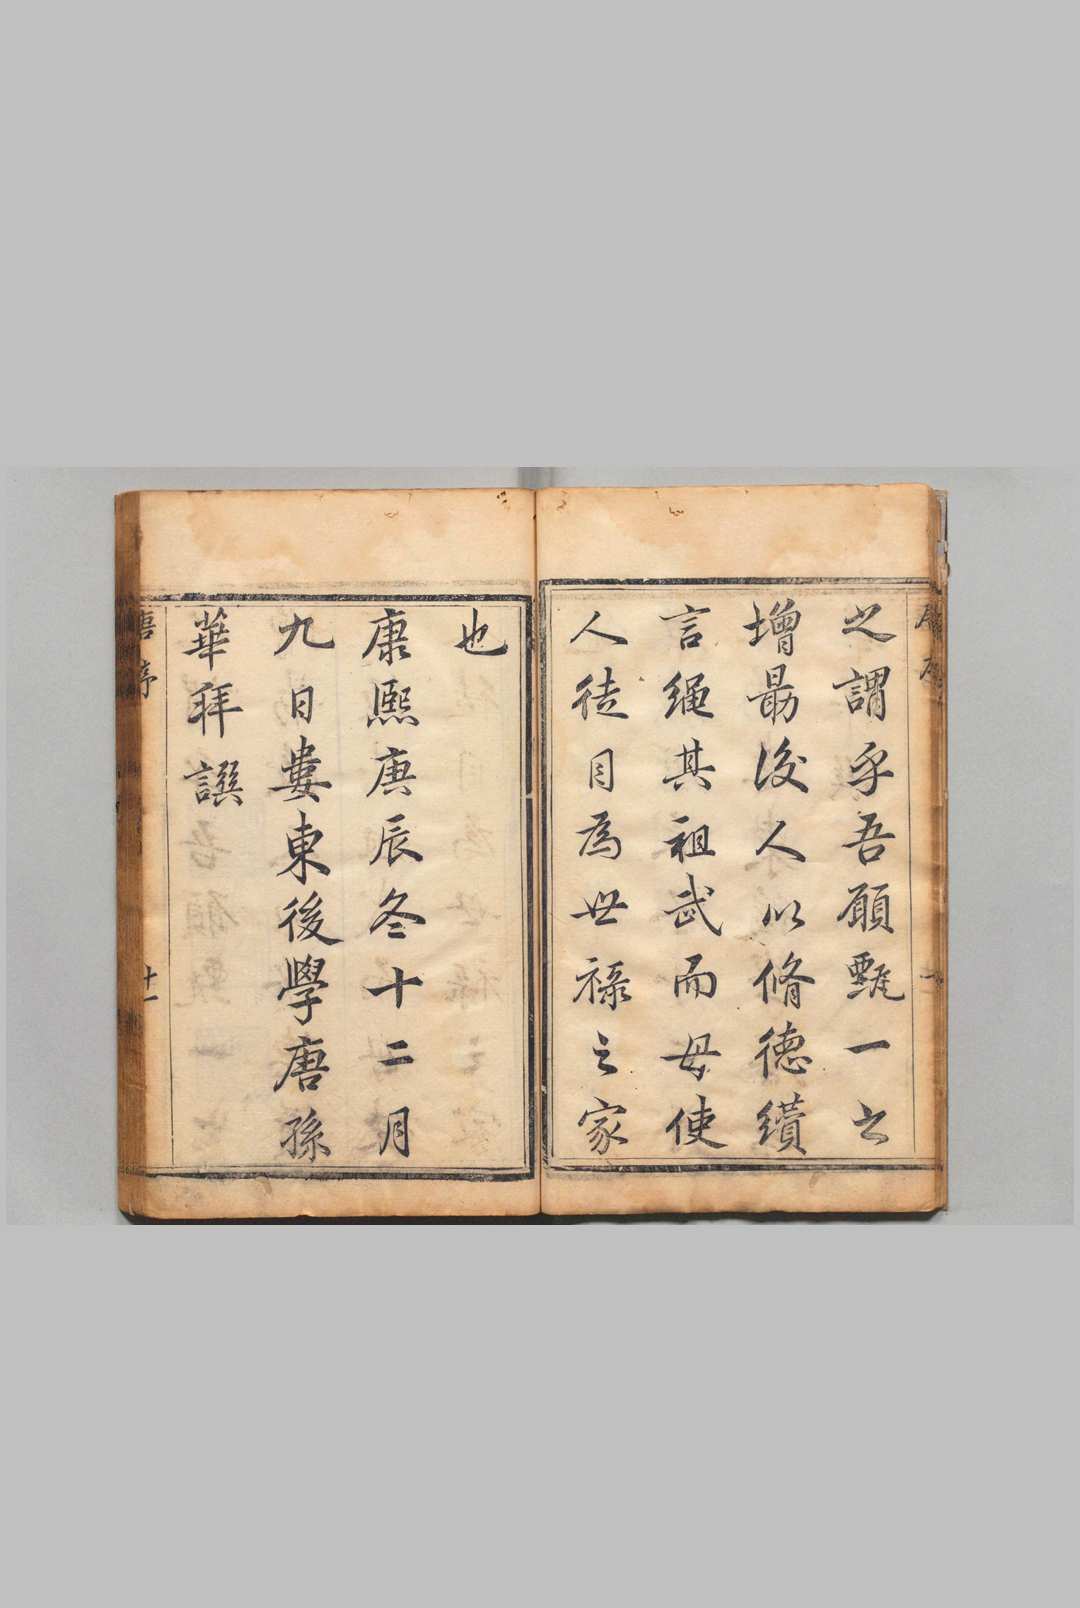 之謂乎吾願甄一之
增勗後人以脩德纘
言繩其祖武而毋使
人徒目為世祿之家
也
康熙庚辰冬十二月
九日婁東後學唐孫
華拜譔
唐序
十一